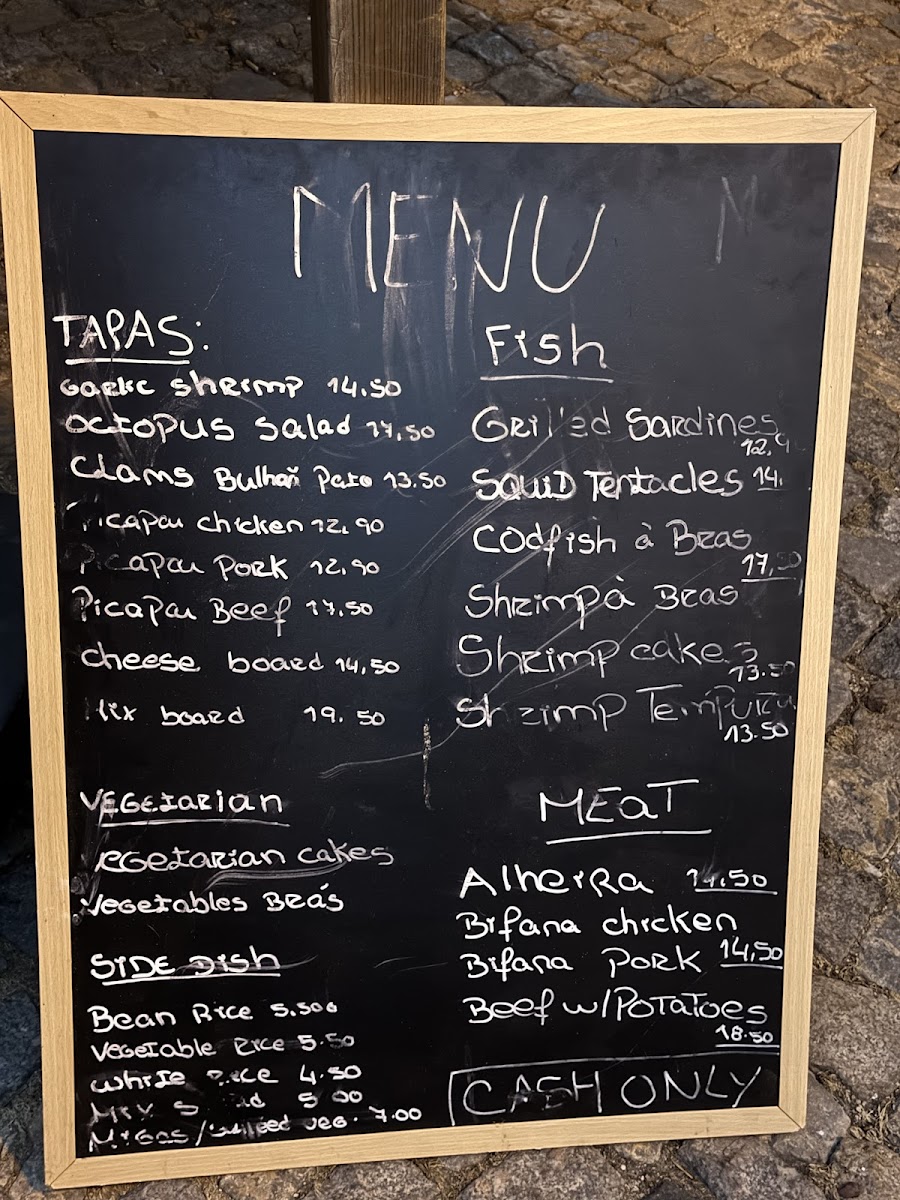 MENU
M
TAPAS:
Garlic shrimp 14.50
Octopus salad 17,50
Clams Bulhaõ Pato 13.50
Picapau chicken 12,90
Picapau Pork 12,90
Picapau Beef 17,50
cheese board 14,50
Mix board 19.50
VEGETARIAN
VEGETARIAN cakes
Vegetables Brás
SIDE DISH
Bean Rice 5.50€
Vegetable Rice 5.50
White Rice 4.50
Mix
Migas / veg. 7.00
Fish
Grilled Sardines
12,9
SQUID Tentacles 14.
Codfish à Bras
17,50
Shrimp à Bras
Shrimp cakes
13.50
Shrimp Tempura
13.50
MEAT
Alheira 14,50
Bifana chicken
Bifana Pork 14,50
Beef w/ POTATOES
18.50
CASH ONLY